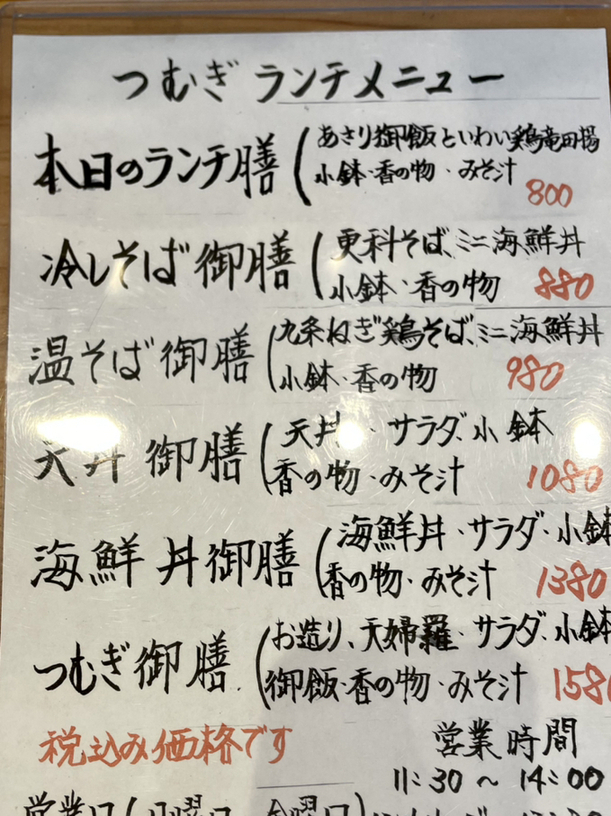 つむぎ ランチメニュー
本日のランチ膳 (あさり御飯といわい鶏竜田揚
小鉢・香の物・みそ汁
800
冷しそば御膳 (更科そば、ミニ海鮮丼
小鉢・香の物 880
温そば御膳 (九条ねぎ鶏そば、ミニ海鮮丼
小鉢・香の物 980
天丼御膳 (天丼・サラダ、小鉢
香の物・みそ汁 1080
海鮮丼御膳 (海鮮丼・サラダ・小鉢
香の物・みそ汁 1380
つむぎ御膳 (お造り、天婦羅・サラダ・小鉢
御飯・香の物・みそ汁 1580
税込み価格です 営業時間
11:30 〜 14:00